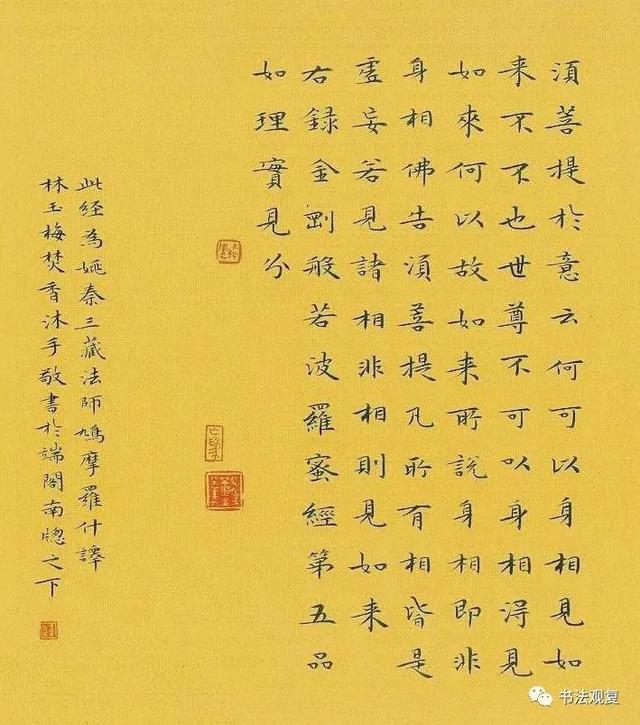 須菩提於意云何可以身相見如
来不不也世尊不可以身相淂見
如來何以故如来所說身相即非
身相佛告湏菩提凡所有相皆是
虛妄若見諸相非相則見如来
右録金剛般若波羅蜜經第五品
如理實見分
此经為姚秦三藏法師鳩摩羅什譯
林玉梅焚香沐手敬書於端閣南窗之下
书法观复